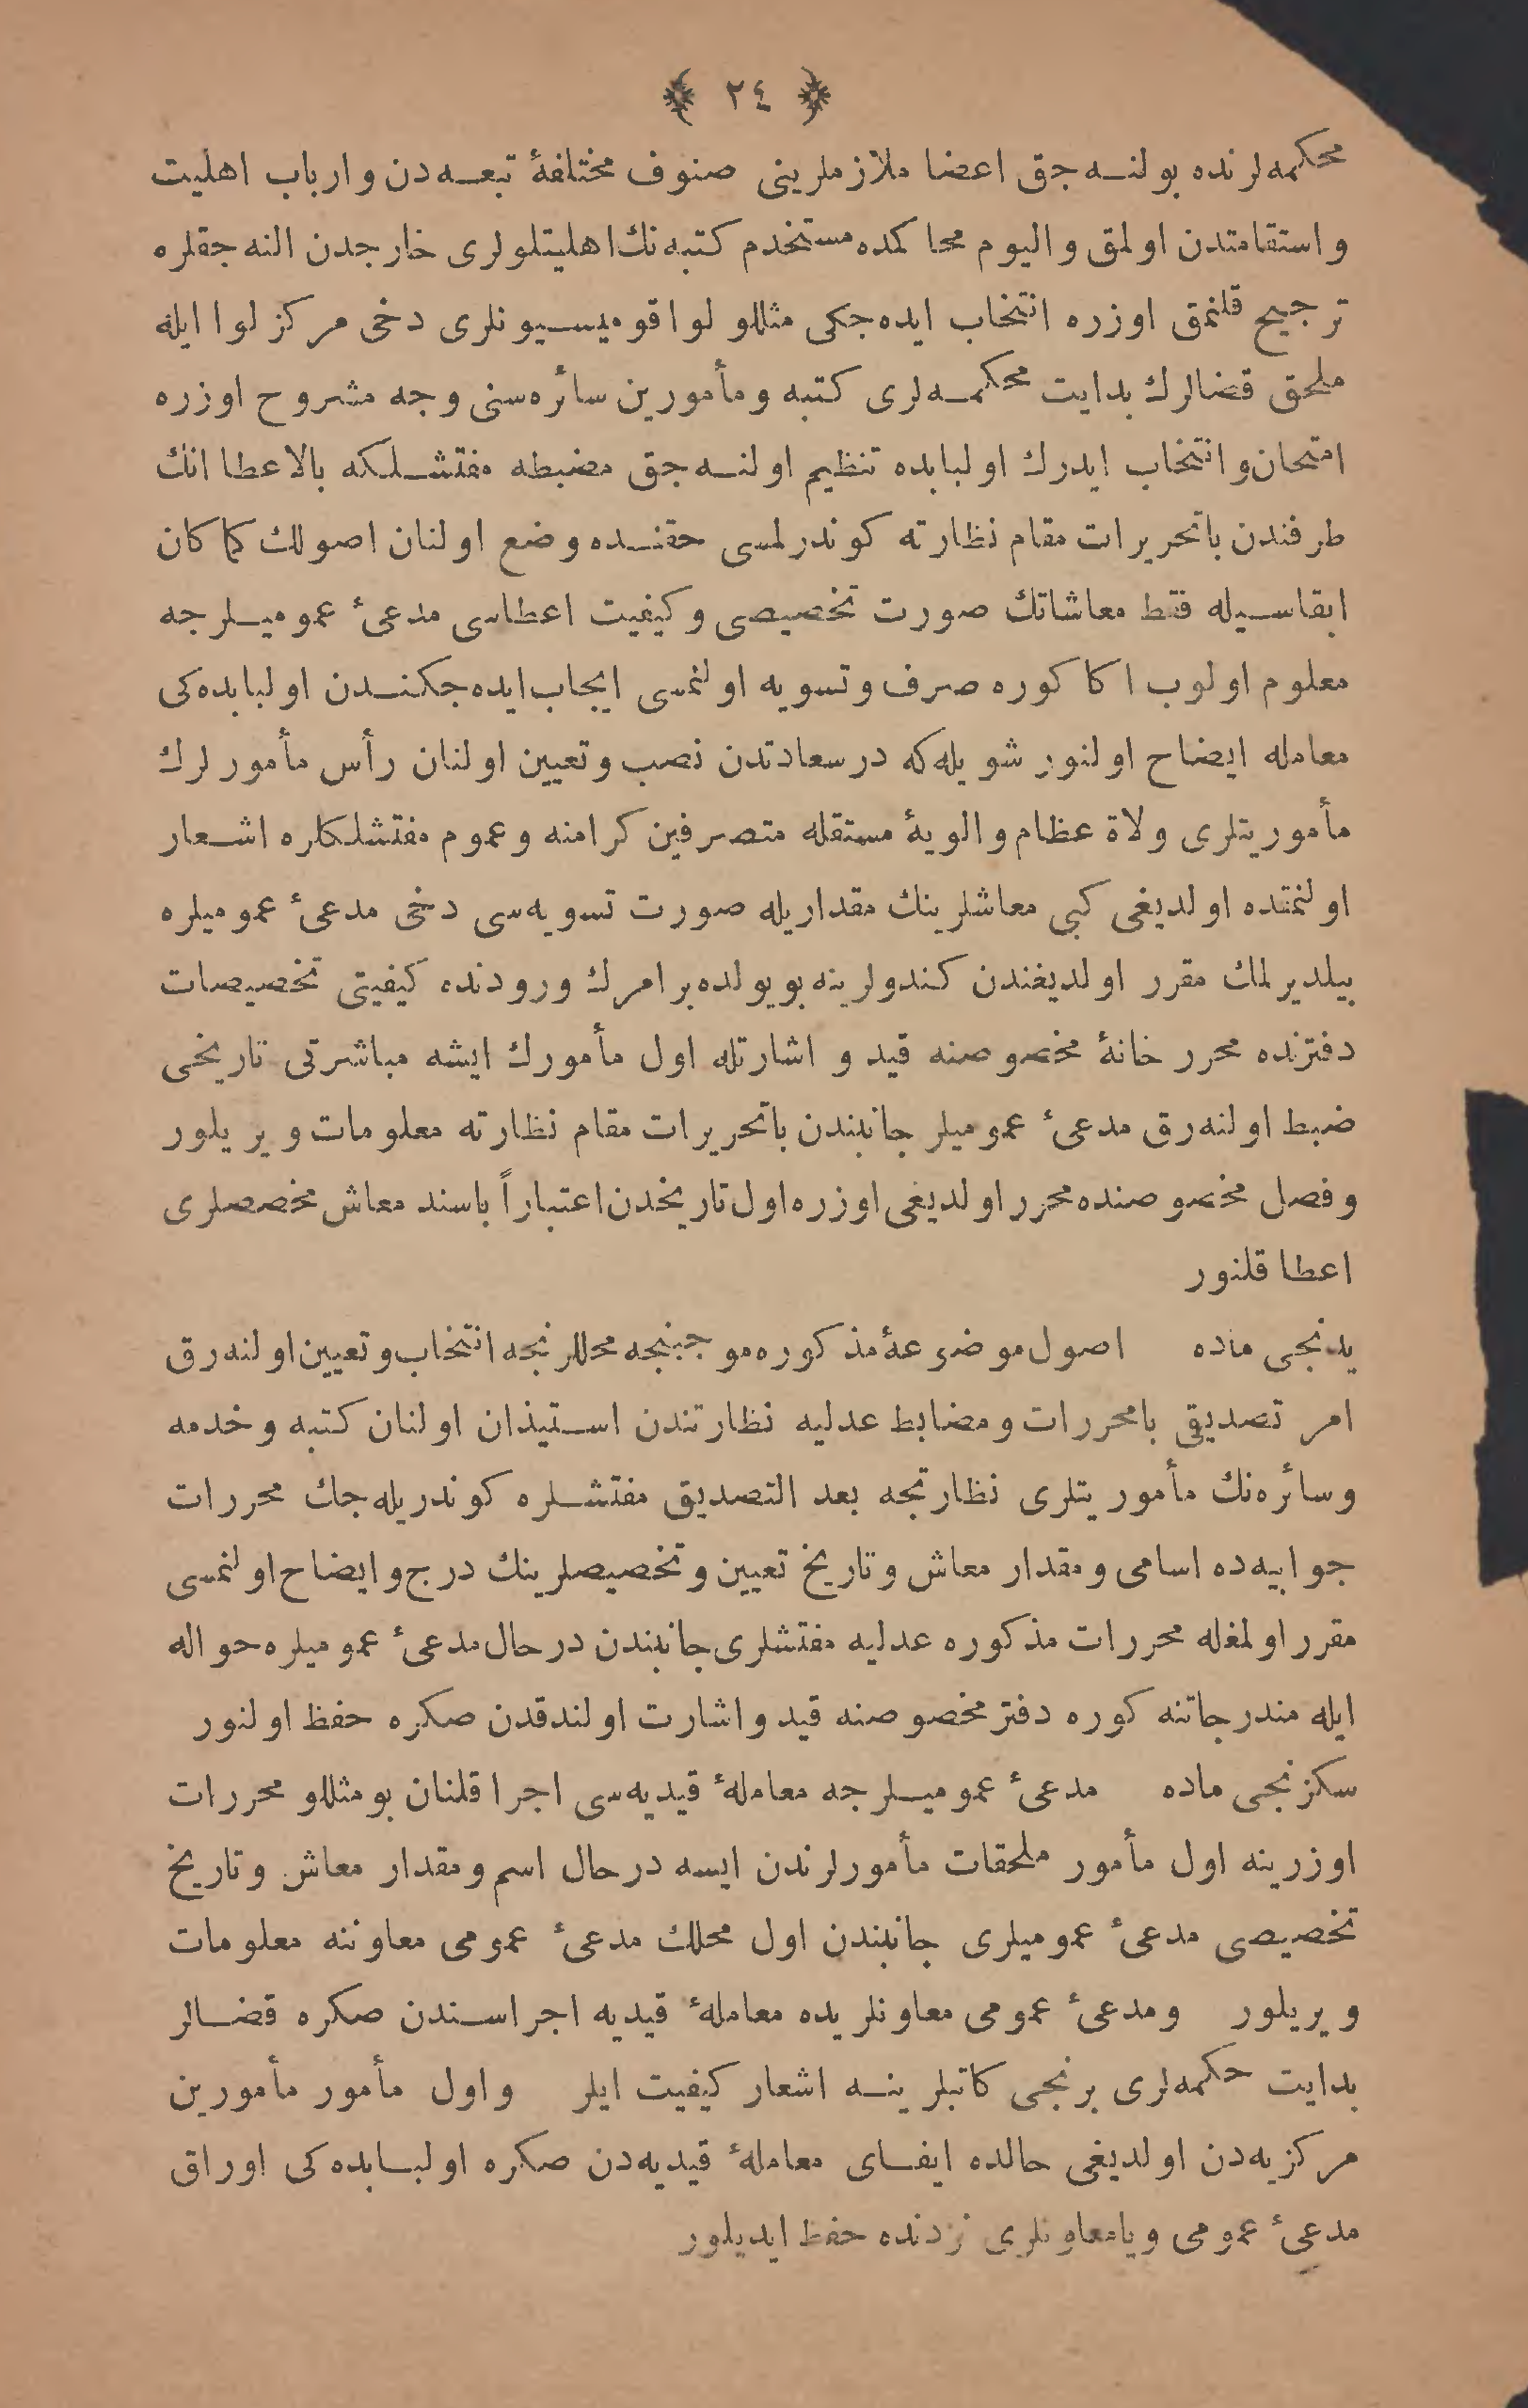 ﴿ ٢٤ ﴾
محكمه‌لرنده بولنه‌جق اعضا ملازملرینی صنوف مختلفهٔ تبعه‌دن وارباب اهلیت
واستقامتدن اولمق والیوم محاكمده مستخدم كتبه‌نك اهلیتلولری خارجدن النه‌جقلره
ترجیح قلنمق اوزره انتخاب ایده‌جكی مثللو لوا قومیسیونلری دخی مركز لوا ایله
ملحق قضالرك بدایت محكمه‌لری كتبه ومأمورین سائره‌سنی وجه مشروح اوزره
امتحان وانتخاب ایدرك اولبابده تنظیم اولنه‌جق مضبطه مفتشلكه بالاعطا انك
طرفندن باتحریرات مقام نظارته كوندرلمسی حقنده وضع اولنان اصولك كماكان
ابقاسیله فقط معاشاتك صورت تخصیصی وكیفیت اعطاسی مدعیٔ عمومیلرجه
معلوم اولوب اكا كوره صرف وتسویه اولنمسی ایجاب ایده‌جكندن اولبابده‌كی
معامله ایضاح اولنور شویله‌كه درسعادتدن نصب وتعیین اولنان رأس مأمورلرك
مأموریتلری ولاة عظام والویهٔ مستقله متصرفین كرامنه وعموم مفتشلكلره اشعار
اولنمقده اولدیغی كبی معاشلرینك مقداریله صورت تسویه‌سی دخی مدعیٔ عمومیلره
بیلدیرلمك مقرر اولدیغندن كندولرینه بویولده برامرك ورودنده كیفیتی تخصیصات
دفترنده محرر خانهٔ مخصوصنه قید و اشارتله اول مأمورك ایشه مباشرتی تاریخی
ضبط اولنه‌رق مدعیٔ عمومیلر جانبندن باتحریرات مقام نظارته معلومات ویریلور
وفصل مخصوصنده محرر اولدیغی اوزره اول تاریخدن اعتباراً باسند معاش مخصصلری
اعطا قلنور
یدنجی ماده اصول موضوعهٔ مذكوره موجبنجه محللرنجه انتخاب وتعیین اولنه‌رق
امر تصدیقی بامحررات ومضابط عدلیه نظارتندن استیذان اولنان كتبه وخدمه
وسائره‌نك مأموریتلری نظارتجه بعد التصدیق مفتشلره كوندریله‌جك محررات
جوابیه‌ده اسامی ومقدار معاش وتاریخ تعیین وتخصیصلرینك درج وایضاح اولنمسی
مقرر اولمغله محررات مذكوره عدلیه مفتشلری جانبندن درحال مدعیٔ عمومیلره حواله
ایله مندرجاتنه كوره دفتر مخصوصنه قید واشارت اولندقدن صكره حفظ اولنور
سكزنجی ماده مدعیٔ عمومیلرجه معاملهٔ قیدیه‌سی اجرا قلنان بومثللو محررات
اوزرینه اول مأمور ملحقات مأمورلرندن ایسه درحال اسم ومقدار معاش وتاریخ
تخصیصی مدعیٔ عمومیلری جانبندن اول محلك مدعیٔ عمومی معاوننه معلومات
ویریلور ومدعیٔ عمومی معاونلریده معاملهٔ قیدیه اجراسندن صكره قضالر
بدایت حكمه‌لری برنجی كاتبلرینه اشعار كیفیت ایلر واول مأمور مأمورین
مركزیه‌دن اولدیغی حالده ایفای معاملهٔ قیدیه‌دن صكره اولبابده‌كی اوراق
مدعیٔ عمومی ویامعاونلری نزدنده حفظ ایدیلور